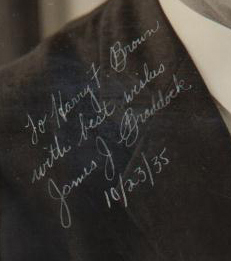 To Harry F. Brown
with best wishes
James J Braddock
10/23/35